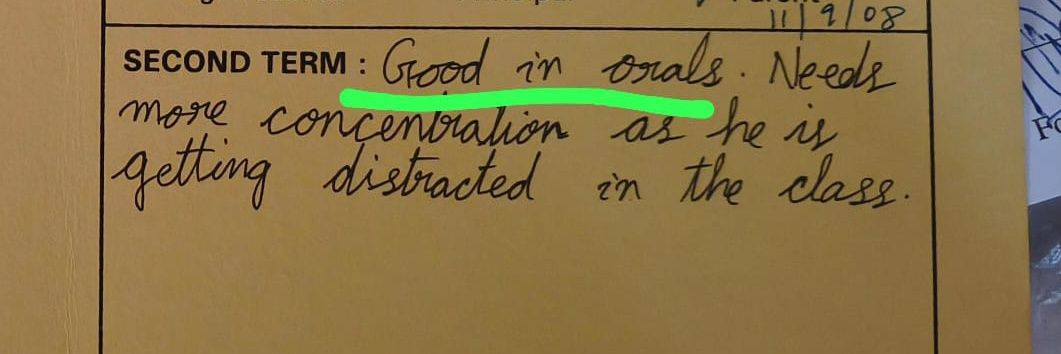 11/9/08
SECOND TERM : Good in orals. Needs
more concentration as he is
getting distracted in the class.